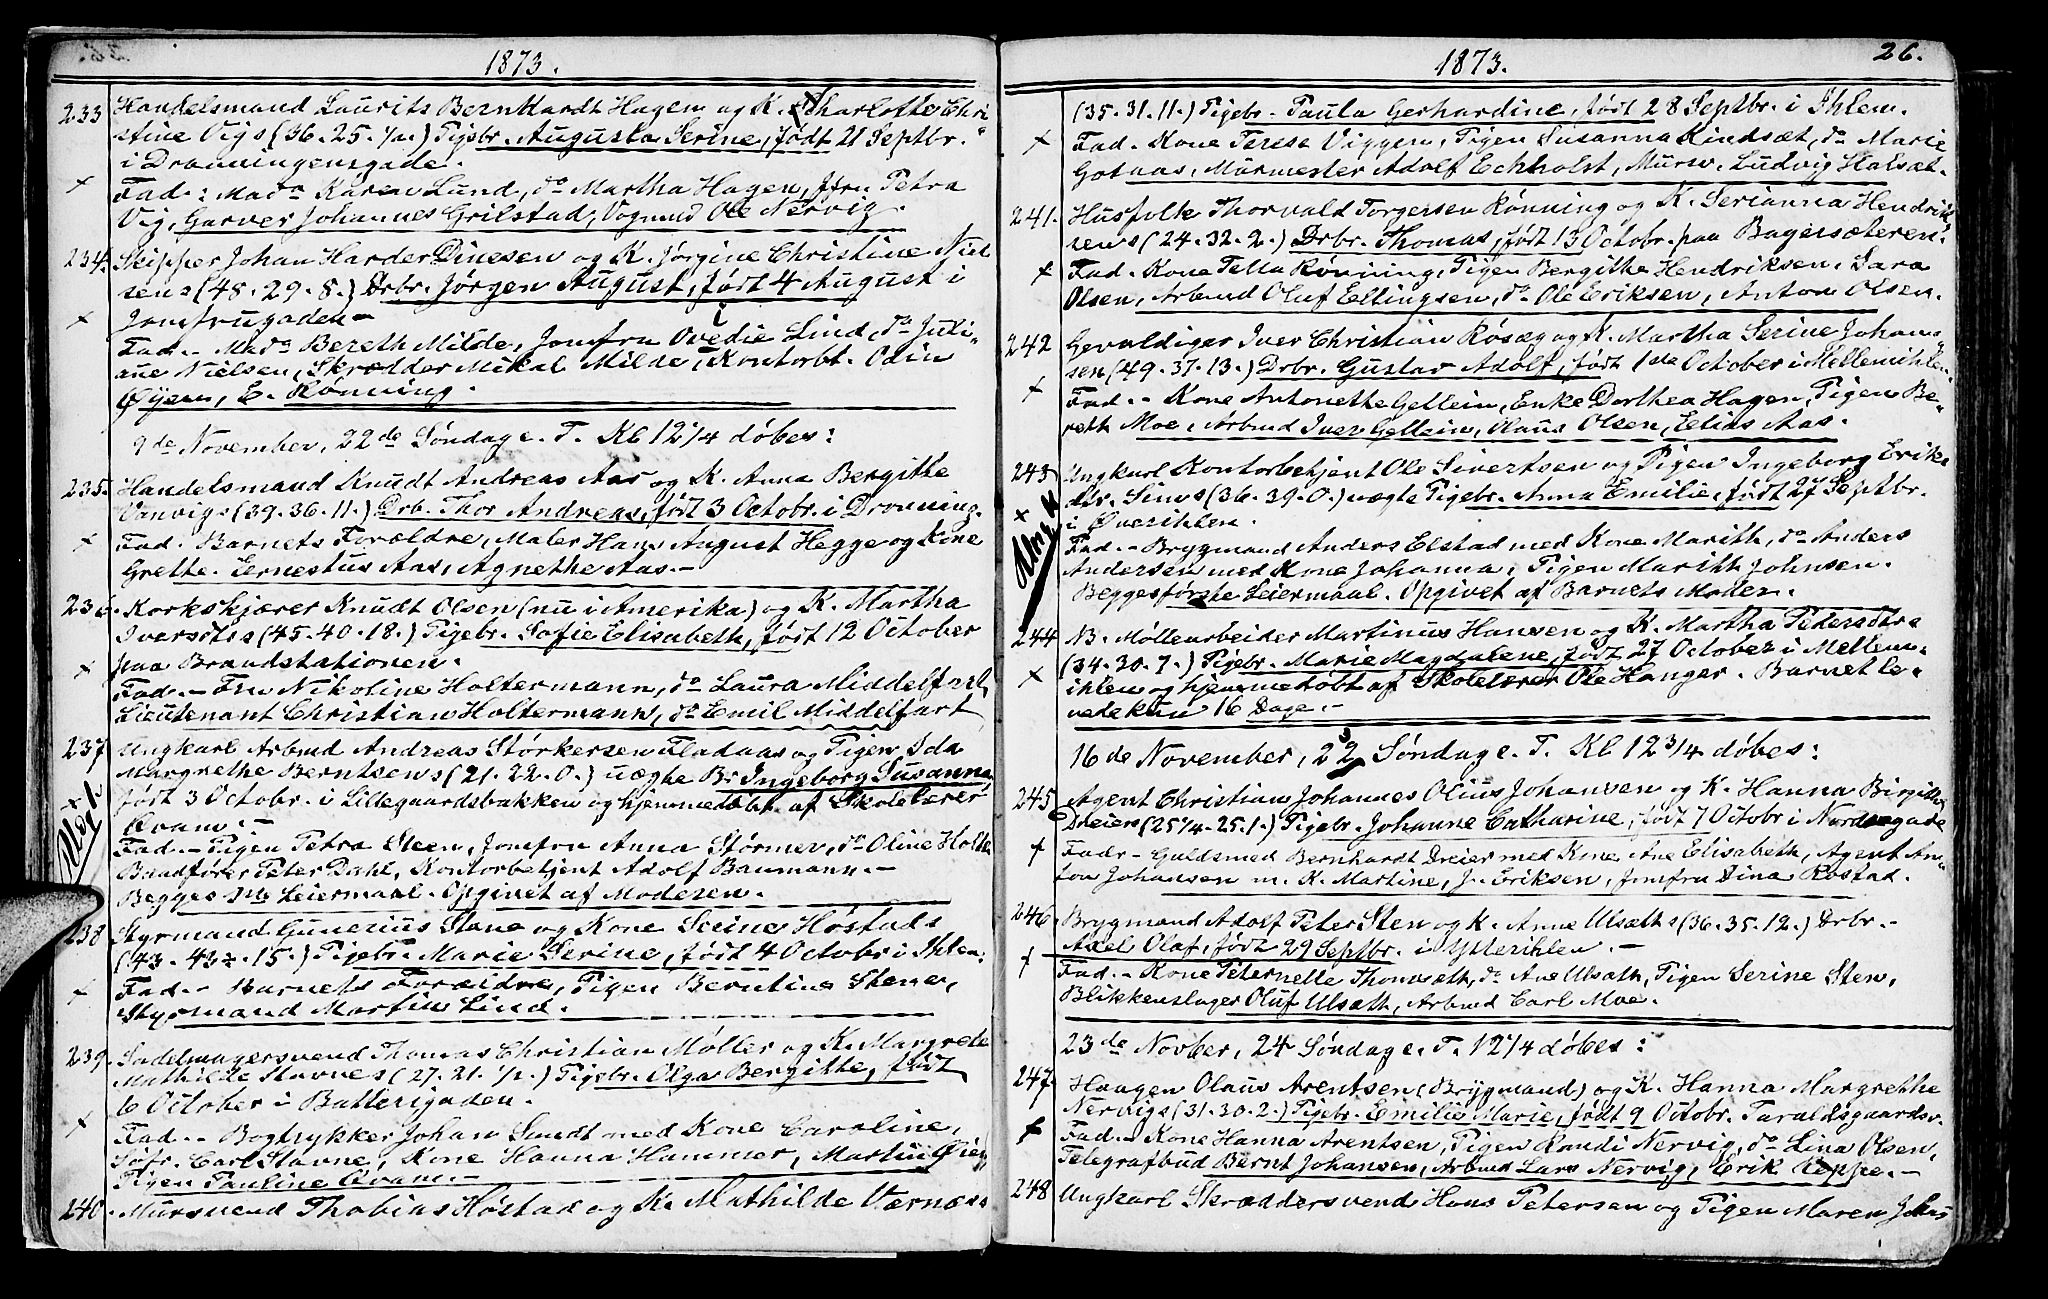 1873.
233 Handelsmand Laurits Bernhardt Hagem og K. Charlotte Chri-
stine Vigs (36. 25. ½.) Pigebr. Augusta Serine, født 21 Septbr.
i Dronningensgade.
+ Fad: Mada Karen Lund, do Martha Hagen, Jfru Petra
Vig, Garver Johannes Grilstad, Vognmd Ole Nervig.
234. Skipper Johan Harder Dinesen og K. Jørgine Christine Niel
sens (48. 29. 8.) Drbr. Jørgen August, født 4 August i
+ Jomfrugaden -
Fad. - Mada Bereth Milde, Jomfru Ovedie Lind, do Juli-
ane Nielsen, Skrædder Mikal Milde, Kontorbt. Odin
Øyen, E. Rønning.
9de November, 22de Søndag e. T. Kl 12¼ døbes:
235. Handelsmand Knudt Andreas Aas og K. Anna Bergitte
Vanvigs (39. 36. 11.) Drb. Thor Andreas, født 3 Octobr. i Dronning-
+ Fad. Barnets Forældre, Maler Hans August Hegge og Kone
Grethe. Ernestus Aas, Agnethe Aas. -
236. Korkskjærer Knudt Olsen (nu i Amerika) og K. Martha
Iversdts (45. 40. 18.) Pigebr. Sofie Elisabeth, født 12 October
+ paa Brandstationen.
Fad. - Fru Nikoline Holtermann, do Laura Middelfart,
Lieutenant Christian Holtermann, do Emil Middelfart
237 Ungkarl Arbmd Andreas Størkersen Fladaas og Pigen Ida
Margrethe Berntsens (21. 22. 0.) uægte Br Ingeborg Susanna,
+ født 3 Octobr. i Lillegaardsbakken og hjemmedøbt af Skolelærer
Uægt Qvam. -
Fad. - Pigen Petra Steen, Jomfru Anna Størmer, do Oline Holte
Baadfører Peter Dahl, Kontorbetjent Adolf Baumann. -
Begges 1ste Leiermaal. Opgivet af Moderen.
238 Styrmand Gunerius Stene og Kone Serine Høstads
(43. 43. 15.) Pigebr. Marie Serine, født 4 Octobr i Ihlen.
+ Fad. - Barnets Forældre, Pigen Berntine Stene,
Styrmand Martin Lind.
239. Sadelmagersvend Thomas Christian Møller og K. Margrete
Mathilde Stavnes (27. 21. ½.) Pigebr. Olga Bergitte, født
6 October i Battengaden.
+ Fad. - Bogtrykker Johan Smidt med Kone Caroline,
Søfr. Carl Stavne, Kone Hanna Hammer, Martin Øien
Pigen Pauline Qvam. -
240. Mursvend Thobias Høstad og K. Mathilde Værnæs
1873. 26.
(35. 31. 11.) Pigebr. Paula Gerhardine, født 28 Septbr. i Ihlen.
+ Fad. Kone Terese Viggen, Pigen Susanna Rindsæt, do Marie
Gotaas, Murmester Adolf Echholst, Mursv. Ludvig Halsæt.
241. Husfolk Thorvald Torgersen Rønning og K. Serianna Hendrik
sens (24. 32. 2.) Drbr. Thomas, født 13 Octobr. paa Bagersæteren.
+ Fad. Kone Tella Rønning, Pigen Bergithe Hendriksen, Sara
Olsen, Arbmd Oluf Ellingsen, do Ole Eriksen, Anton Olsen.
242 Gevaldiger Iver Christian Røsæg og K. Martha Serine Johan-
sen (49. 37. 13.) Drbr. Gustav Adolf, født 1ste October i Mellemihlen.
+ Fad. - Kone Antonette Gellein, Enke Dorthea Hagen, Pigen Be-
reth Moe, Arbmd Iver Gellein, Olaus Olsen, Elias Aas.
243 Ungkarl Kontorbetjent Ole Sivertsen og Pigen Ingeborg Eriks
dtr. Sines (36. 39. 0.) uægte Pigebr. Anna Emilie, født 27 Septbr.
+ i Øverihlen.
Uægt Fad. - Brygmand Anders Elstad med Kone Marith, do Anders
Andersen med Kone Johanna, Pigen Maritt Johnsen.
Beggesførste Leiermaal. Opgivet af Barnets Moder.
244 NB. Møllearbeider Martinus Hansen og K. Martha Pedersdtrs
(34. 30. 7.) Pigebr. Marie Magdalene, født 27 October i Mellem-
+ ihlen og hjemmedøbt af Skolelærer Ole Hanger. Barnet le-
vede kun 16 Dage. -
16de November, 23 Søndag e. T. Kl 12¾ døbes:
245 Agent Christian Johannes Olius Johansen og K. Hanna Birgitte
Dreiers (25¼. 25. 1.) Pigebr. Johanne Catharine, født 7 Octobr i Nordregade
+ Fadr - Guldsmed Bernhardt Dreier med Kone Ane Elisabeth, Agent An-
ton Johansen m. K. Martine, J. Eriksen, Jomfru Dina Rostad.
246. Brygmand Adolf Peter Sten og K. Anne Ulsæths (36. 35. 12.) Drbr. -
Axel Olaf, født 29 Septbr. i Ytterihlen. -
+ Fad. - Kone Peternelle Thomseth, do Ane Ulsath, Pigen Serine Sten,
Blikkenslager Oluf Ulsath, Arbmd Carl Moe.
23de Novber, 24 Søndag e. T. 12¼ døbes:
247. Haagen Olaus Arentsen (Brygmand) og K. Hanna Margrethe
Nervigs (31. 30. 2.) Pigebr. Emilie Marie, født 9 Octobr. Taraldsgaardsv.
+ Fad. - Kone Hanna Arentsen, Pigen Randi Nervig, do Lina Olsen,
Telegrafbud Bernt Johansen, Arbmd Lars Nervig, Erik Loppe. -
248 Ungkarl Skræddersvend Hans Petersen og Pigen Maren Johns